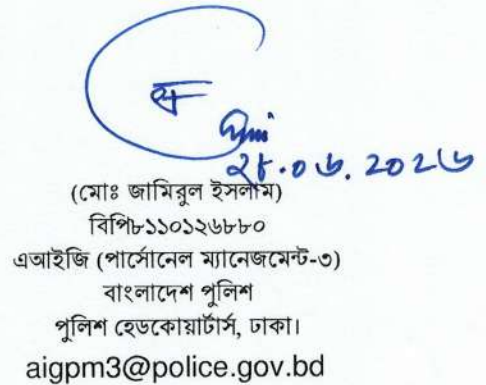 ২৮.০৬.২০২৬
(মোঃ জামিরুল ইসলাম)
বিপি৮১১০১২৬৮৮০
এআইজি (পার্সোনেল ম্যানেজমেন্ট-৩)
বাংলাদেশ পুলিশ
পুলিশ হেডকোয়ার্টার্স, ঢাকা।
aigpm3@police.gov.bd